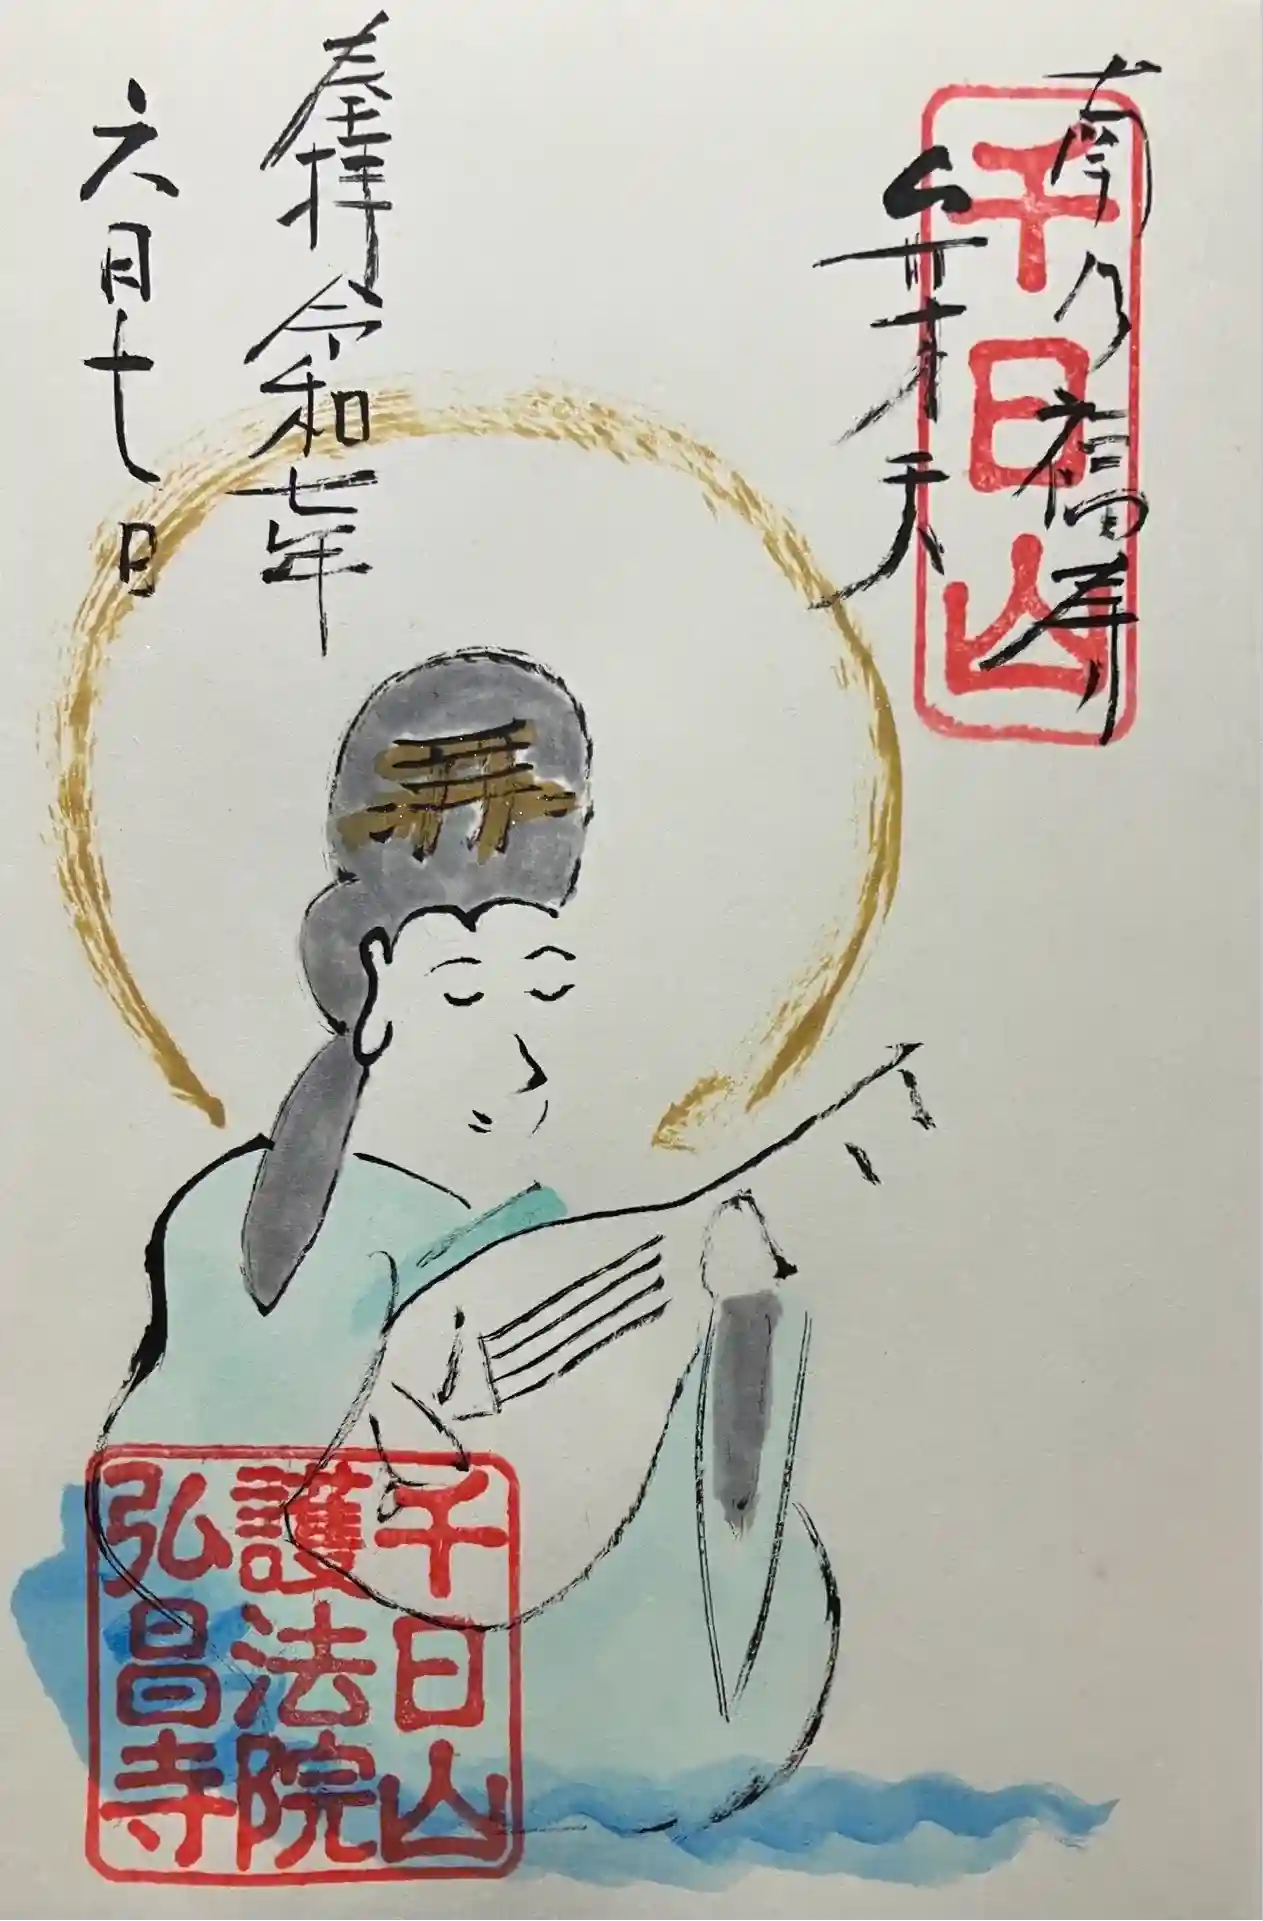 南乃福寿
弁才天
千日山
奉拝令和七年
六月十七日
千日山
護法院
弘昌寺